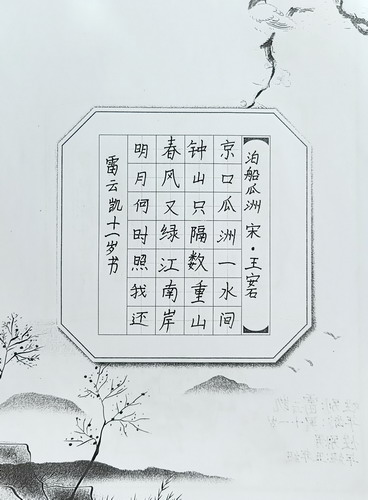 泊船瓜洲 宋·王安石
京口瓜洲一水间
钟山只隔数重山
春风又绿江南岸
明月何时照我还
雷云凯十一岁书